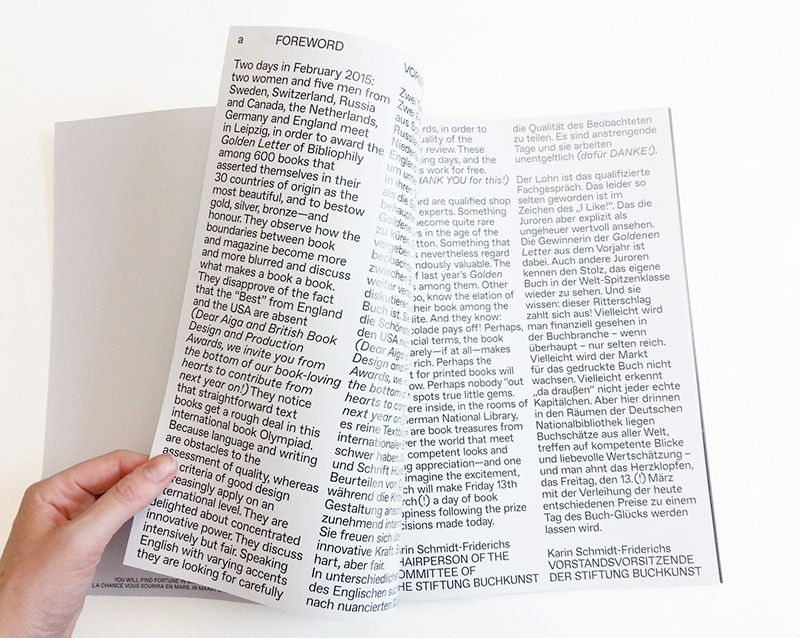 a FOREWORD
Two days in February 2015:
two women and five men from
Sweden, Switzerland, Russia
and Canada, the Netherlands,
Germany and England meet
in Leipzig, in order to award the
Golden Letter of Bibliophily
among 600 books that
asserted themselves in their
30 countries of origin as the
most beautiful, and to bestow
gold, silver, bronze—and
honour. They observe how the
boundaries between book
and magazine become more
and more blurred and discuss
what makes a book a book.
They disapprove of the fact
that the “Best” from England
and the USA are absent
(Dear Aiga and British Book
Design and Production
Awards, we invite you from
the bottom of our book-loving
hearts to contribute from
next year on!) They notice
that straightforward text
books get a rough deal in this
international book Olympiad.
Because language and writing
are obstacles to the
assessment of quality, whereas
criteria of good design
increasingly apply on an
international level. They are
delighted about concentrated
innovative power. They discuss
intensively but fair. Speaking
English with varying accents
they are looking for carefully
Zwei
Zwei
aus
um
in ihren
als die
Goldene
zu küren
vergeben
zwischen
weiter
diskutieren
Buch ist.
die Schöns
den USA
(Dear Aiga
Design and
Awards, we
the bottom
hearts to
next year on
es reine
internationale
schwer haben.
und Schrift
Beurteilen von
während die
Gestaltung
zunehmend
Sie freuen sich
innovative Kraft.
hart, aber fair.
In unterschiedliche
des Englischen
nach nuancierten
rds, in order to
uality of the
r review. These
king days, and the
s work for free.
HANK YOU for this!)
ard are qualified shop
experts. Something
become quite rare
s in the age of the
tton. Something that
s nevertheless regard
ndously valuable. The
f last year’s Golden
among them. Other
o, know the elation of
heir book among the
lite. And they know:
colade pays off! Perhaps,
ncial terms, the book
arely—if at all—makes
rich. Perhaps the
t for printed books will
ow. Perhaps nobody “out
spots true little gems.
ere inside, in the rooms of
erman National Library,
are book treasures from
er the world that meet
competent looks and
g appreciation—and one
imagine the excitement,
ch will make Friday 13th
rch(!) a day of book
ppiness following the prize
cisions made today.
rin Schmidt-Friderichs
HAIRPERSON OF THE
OMMITTEE OF
HE STIFTUNG BUCHKUNST
die Qualität des Beobachteten
zu teilen. Es sind anstrengende
Tage und sie arbeiten
unentgeltlich (dafür DANKE!).
Der Lohn ist das qualifizierte
Fachgespräch. Das leider so
selten geworden ist im
Zeichen des „I Like!“. Das die
Juroren aber explizit als
ungeheuer wertvoll ansehen.
Die Gewinnerin der Goldenen
Letter aus dem Vorjahr ist
dabei. Auch andere Juroren
kennen den Stolz, das eigene
Buch in der Welt-Spitzenklasse
wieder zu sehen. Und sie
wissen: dieser Ritterschlag
zahlt sich aus! Vielleicht wird
man finanziell gesehen in
der Buchbranche – wenn
überhaupt – nur selten reich.
Vielleicht wird der Markt
für das gedruckte Buch nicht
wachsen. Vielleicht erkennt
„da draußen“ nicht jeder echte
Kapitälchen. Aber hier drinnen
in den Räumen der Deutschen
Nationalbibliothek liegen
Buchschätze aus aller Welt,
treffen auf kompetente Blicke
und liebevolle Wertschätzung –
und man ahnt das Herzklopfen,
das Freitag, den 13.(!) März
mit der Verleihung der heute
entschiedenen Preise zu einem
Tag des Buch-Glücks werden
lassen wird.
Karin Schmidt-Friderichs
VORSTANDSVORSITZENDE
DER STIFTUNG BUCHKUNST
YOU WILL FIND FORTUNE IN
LA CHANCE VOUS SOURIRA EN MARS, IN